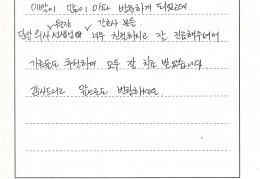 이빨이 많이 아파 방문하게 되었는데
원장 간호사 분들
담당 의사선생님이 너무 친절하시고 잘 진료해주셔서
가족들도 추천하여 모두 잘 치료 받았습니다
감사드리고 앞으로도 번창하세요